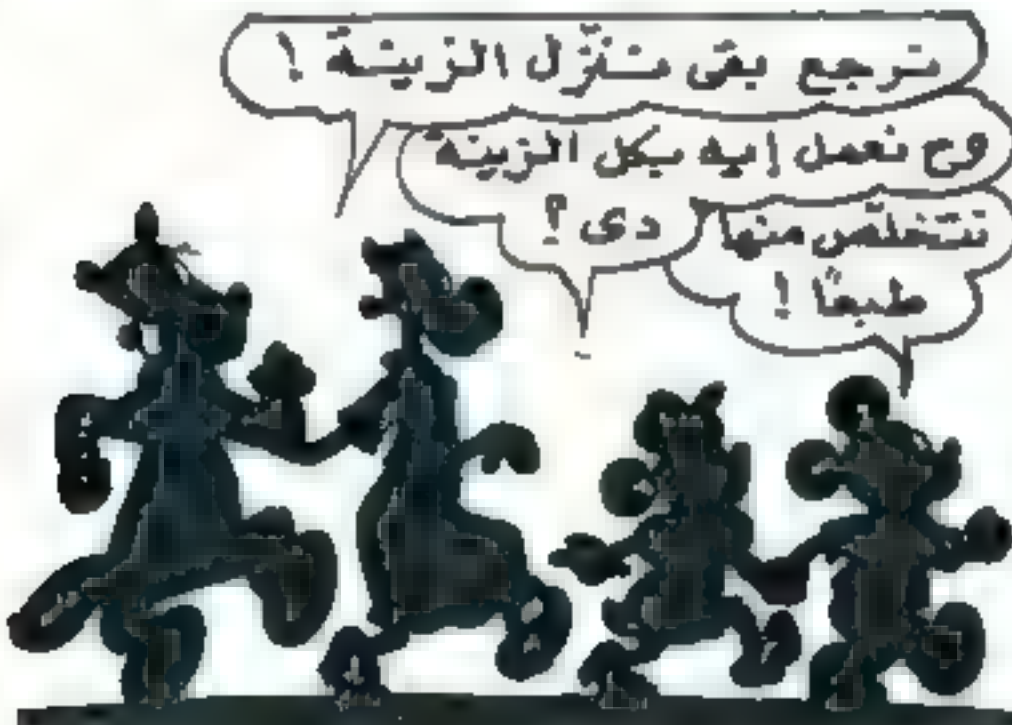 نرجع بقى ننزّل الزينة !
وح نعمل إيه بكل الزينة
دى ؟
نتخلّص منها
طبعًا !